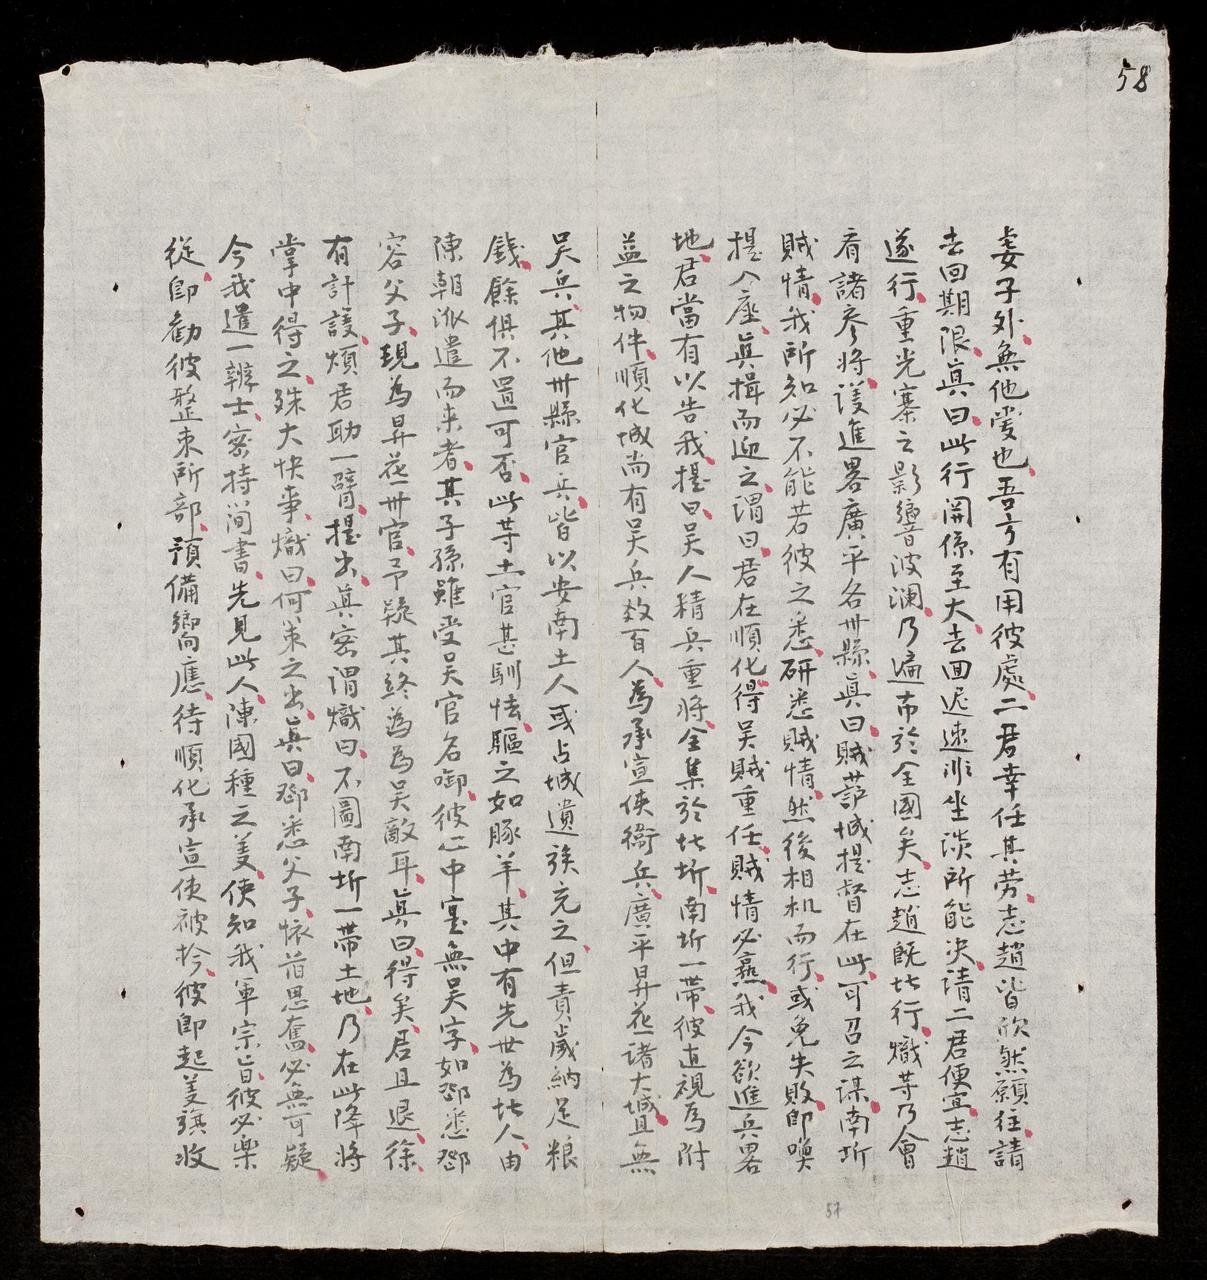 58
妻子外無他愛也吾方有用彼處二君幸任其劳志趙皆欣然願往請
去回期限真曰此行関係至大去回迟速非坐淡所能决請二君便宜志趙
遂行重光寨之影響波澜乃遍布於全國矣志趙既北行熾等乃會
看諸參將議進畧廣平各卅縣真曰賊茹城提督在此可召之謀南圻
賊情我所知必不能若彼之悉研悉賊情然後相机而行或免失敗即喚
提入座真揖而迎之謂曰君在順化得吴賊重任賊情必熹我今欲進兵畧
地君當有以告我提曰吴人精兵重將全集於北圻南圻一帶彼直視為附
益之物件順化城尚有吴兵数百人為承宣使衙兵廣平昇花諸大城且無
吴兵其他卅縣官兵皆以安南土人或占城遺族充之但責歲納足粮
錢餘俱不置可否此等土官甚馴怯驅之如豚羊其中有先世為北人由
陳朝派遣而来者其子孫雖受吴官名御彼心中寔無吴字如鄧悉鄧
容父子現為昇花卅官予疑其終為為吴敵耳真曰得矣居且退徐
有計議煩君助一臂提出真密謂熾曰不圖南圻一帶土地乃在此降將
掌中得之殊大快事熾曰何策之出真曰鄧悉父子懷旧恩奮必無可疑
今我遣一辨士密持简書先見此人陳國種之義使知我軍宗旨彼必樂
從即勸彼整束所部預備嚮應待順化承宣使被扲彼即起義旗收
57